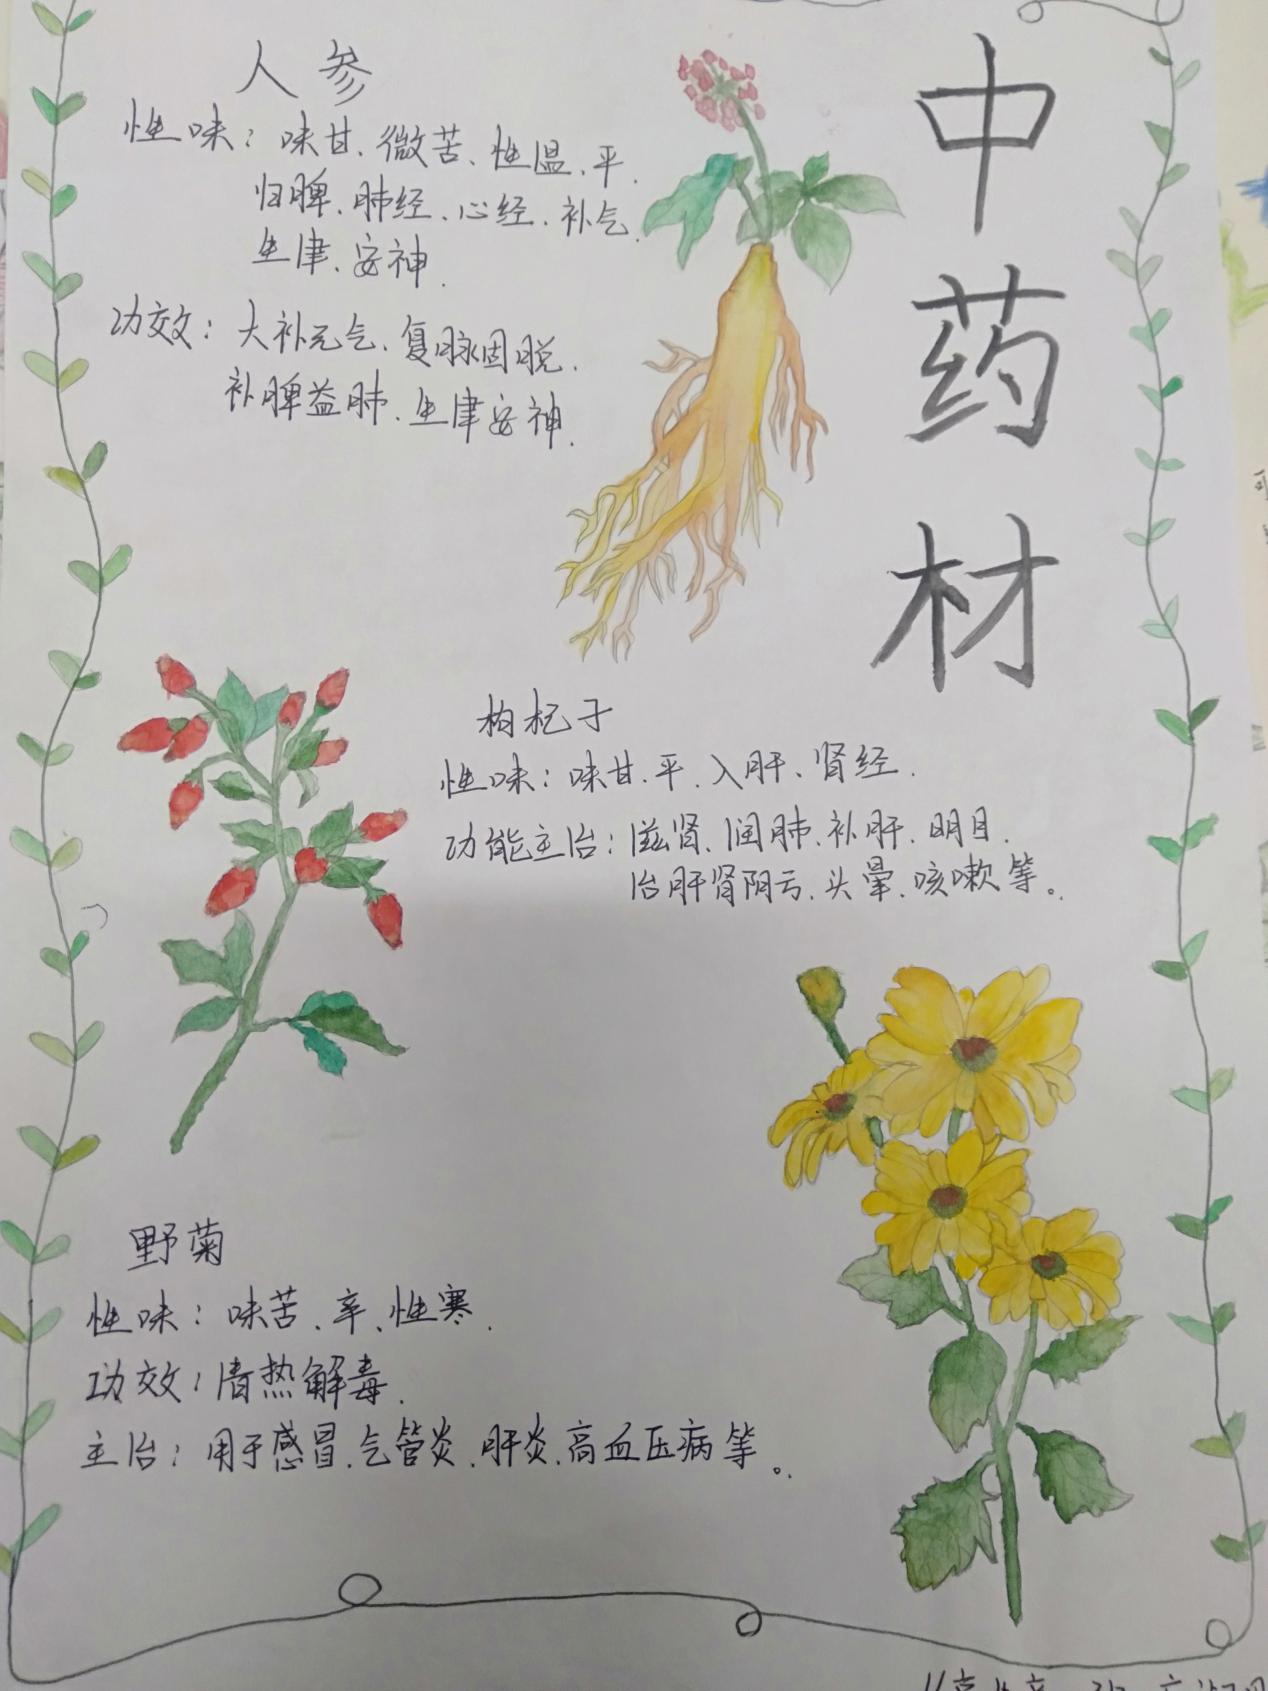 中药材
人参
性味：味甘、微苦、性温、平.
归脾、肺经、心经、补气.
生津、安神.
功效：大补元气、复脉固脱.
补脾益肺、生津安神.
枸杞子
性味：味甘、平、入肝、肾经.
功能主治：滋肾、润肺、补肝、明目.
治肝肾阴亏、头晕、咳嗽等。
野菊
性味：味苦、辛、性寒.
功效：清热解毒.
主治：用于感冒、气管炎、肝炎、高血压病等。